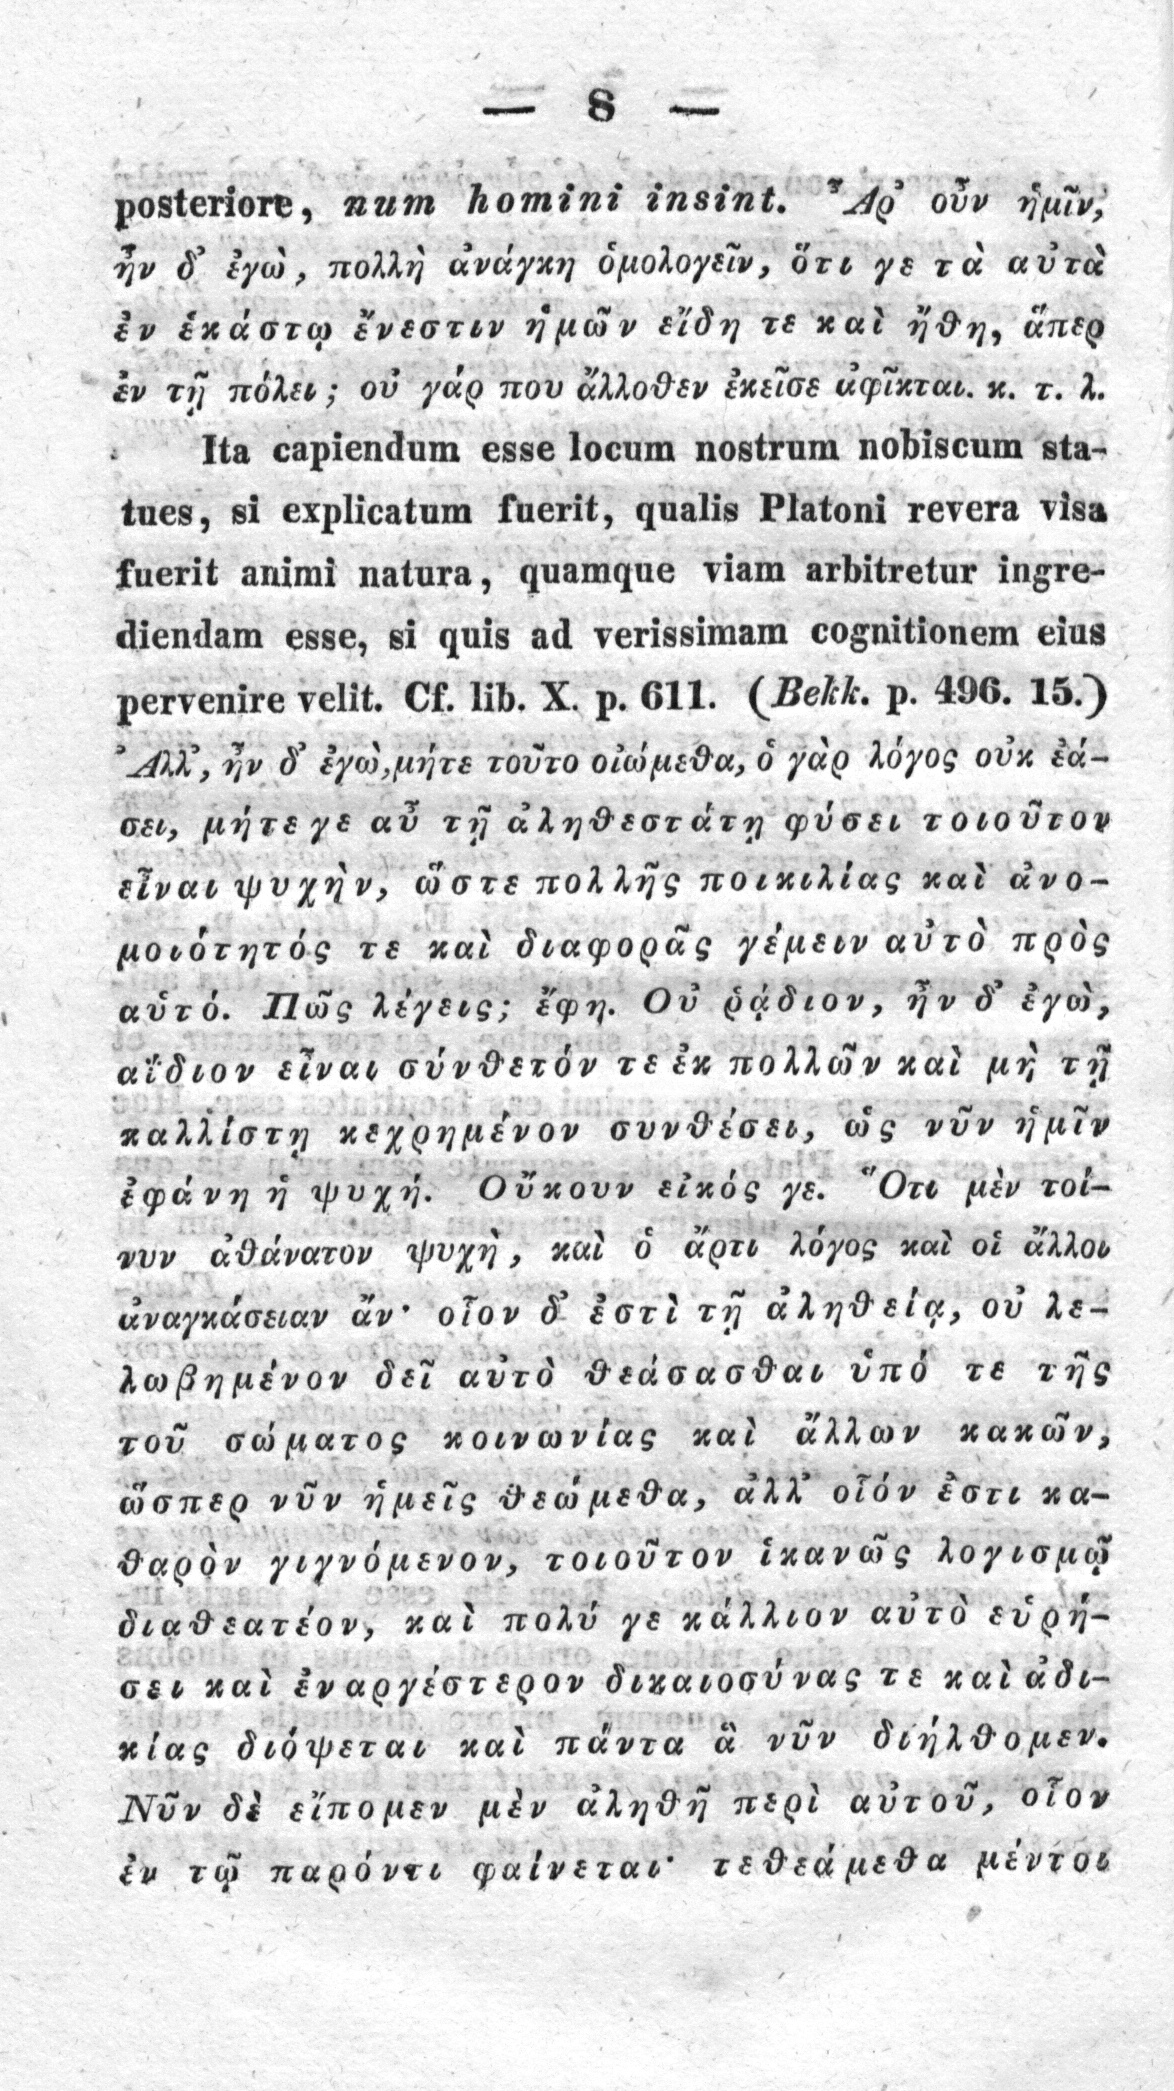 — 8 —
posteriore, num homini insint. Ἆρ᾽ οὖν ἡμῖν,
ἦν δ᾽ ἐγὼ, πολλὴ ἀνάγκη ὁμολογεῖν, ὅτι γε τὰ αὐτὰ
ἐν ἑκάστῳ ἔνεστιν ἡμῶν εἴδη τε καὶ ἤθη, ἅπερ
ἐν τῇ πόλει; οὐ γάρ που ἄλλοθεν ἐκεῖσε ἀφῖκται. κ. τ. λ.
Ita capiendum esse locum nostrum nobiscum sta-
tues, si explicatum fuerit, qualis Platoni revera visa
fuerit animi natura, quamque viam arbitretur ingre-
diendam esse, si quis ad verissimam cognitionem eius
pervenire velit. Cf. lib. X. p. 611. (Bekk. p. 496. 15.)
Ἀλλ᾽, ἦν δ᾽ ἐγὼ, μήτε τοῦτο οἰώμεθα, ὁ γὰρ λόγος οὐκ ἐά-
σει, μήτε γε αὖ τῇ ἀληθεστάτῃ φύσει τοιοῦτον
εἶναι ψυχὴν, ὥστε πολλῆς ποικιλίας καὶ ἀνο-
μοιότητός τε καὶ διαφορᾶς γέμειν αὐτὸ πρὸς
αὑτό. Πῶς λέγεις; ἔφη. Οὐ ῥᾴδιον, ἦν δ᾽ ἐγὼ,
αΐδιον εἶναι σύνθετόν τε ἐκ πολλῶν καὶ μὴ τῇ
καλλίστῃ κεχρημένον συνθέσει, ὡς νῦν ἡμῖν
ἐφάνη ἡ ψυχή. Οὔκουν εἰκός γε. Ὅτι μὲν τοί-
νυν ἀθάνατον ψυχὴ, καὶ ὁ ἄρτι λόγος καὶ οἱ ἄλλοι
ἀναγκάσειαν ἄν· οἷον δ᾽ ἐστὶ τῇ ἀληθείᾳ, οὐ λε-
λωβημένον δεῖ αὐτὸ θεάσασθαι ὑπό τε τῆς
τοῦ σώματος κοινωνίας καὶ ἄλλων κακῶν,
ὥσπερ νῦν ἡμεῖς θεώμεθα, ἀλλ᾽ οἷόν ἐστι κα-
θαρὸν γιγνόμενον, τοιοῦτον ἱκανῶς λογισμῷ
διαθεατέον, καὶ πολύ γε κάλλιον αὐτὸ εὑρή-
σει καὶ ἐναργέστερον δικαιοσύνας τε καὶ ἀδι-
κίας διόψεται καὶ πάντα ἃ νῦν διήλθομεν.
Νῦν δὲ εἴπομεν μὲν ἀληθῆ περὶ αὐτοῦ, οἷον
ἐν τῷ παρόντι φαίνεται· τεθεάμεθα μέντοι